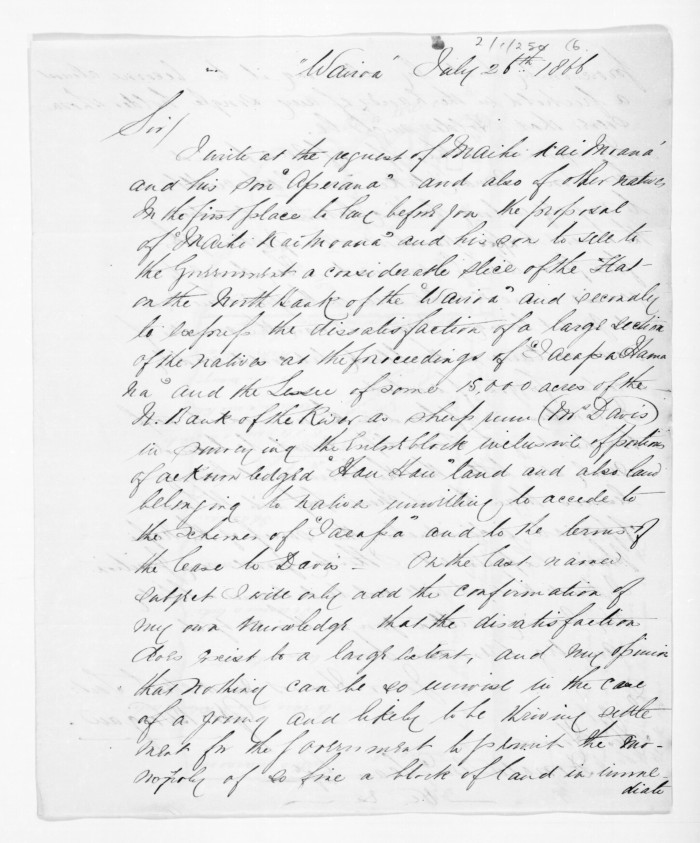 "Wairoa" July 26th 1866
Sir/
I write at the request of "Maihi Kaimoana"
and his son "Aperiana" and also of other natives
In the first place to lay before you the proposal
of "Maihi Kaimoana" and his son to sell to
the Government a considerable slice of the Flat
on the North Bank of the "Wairoa" and secondly
to express the dissatisfaction of a large section
of the natives at the proceedings of
and the Lessee of some 15,000 acres of the
N. Bank of the River as sheep run (Mr Davis)
in surveying the Entire block inclusive of portions
of acknowledged "Hau Hau" land and also land
belonging to natives unwilling to accede to
the schemes of and to the terms of
the lease to Davis - On the last named
subject I will only add the confirmation of
my own knowledge that the disatisfaction
does exist to a large extent, and my opinion
that nothing can be so unwise in the case
of a young and likely to be thriving settle
ment for the Government to permit the mo-
nopoly of so fine a block of land in imme-
diate